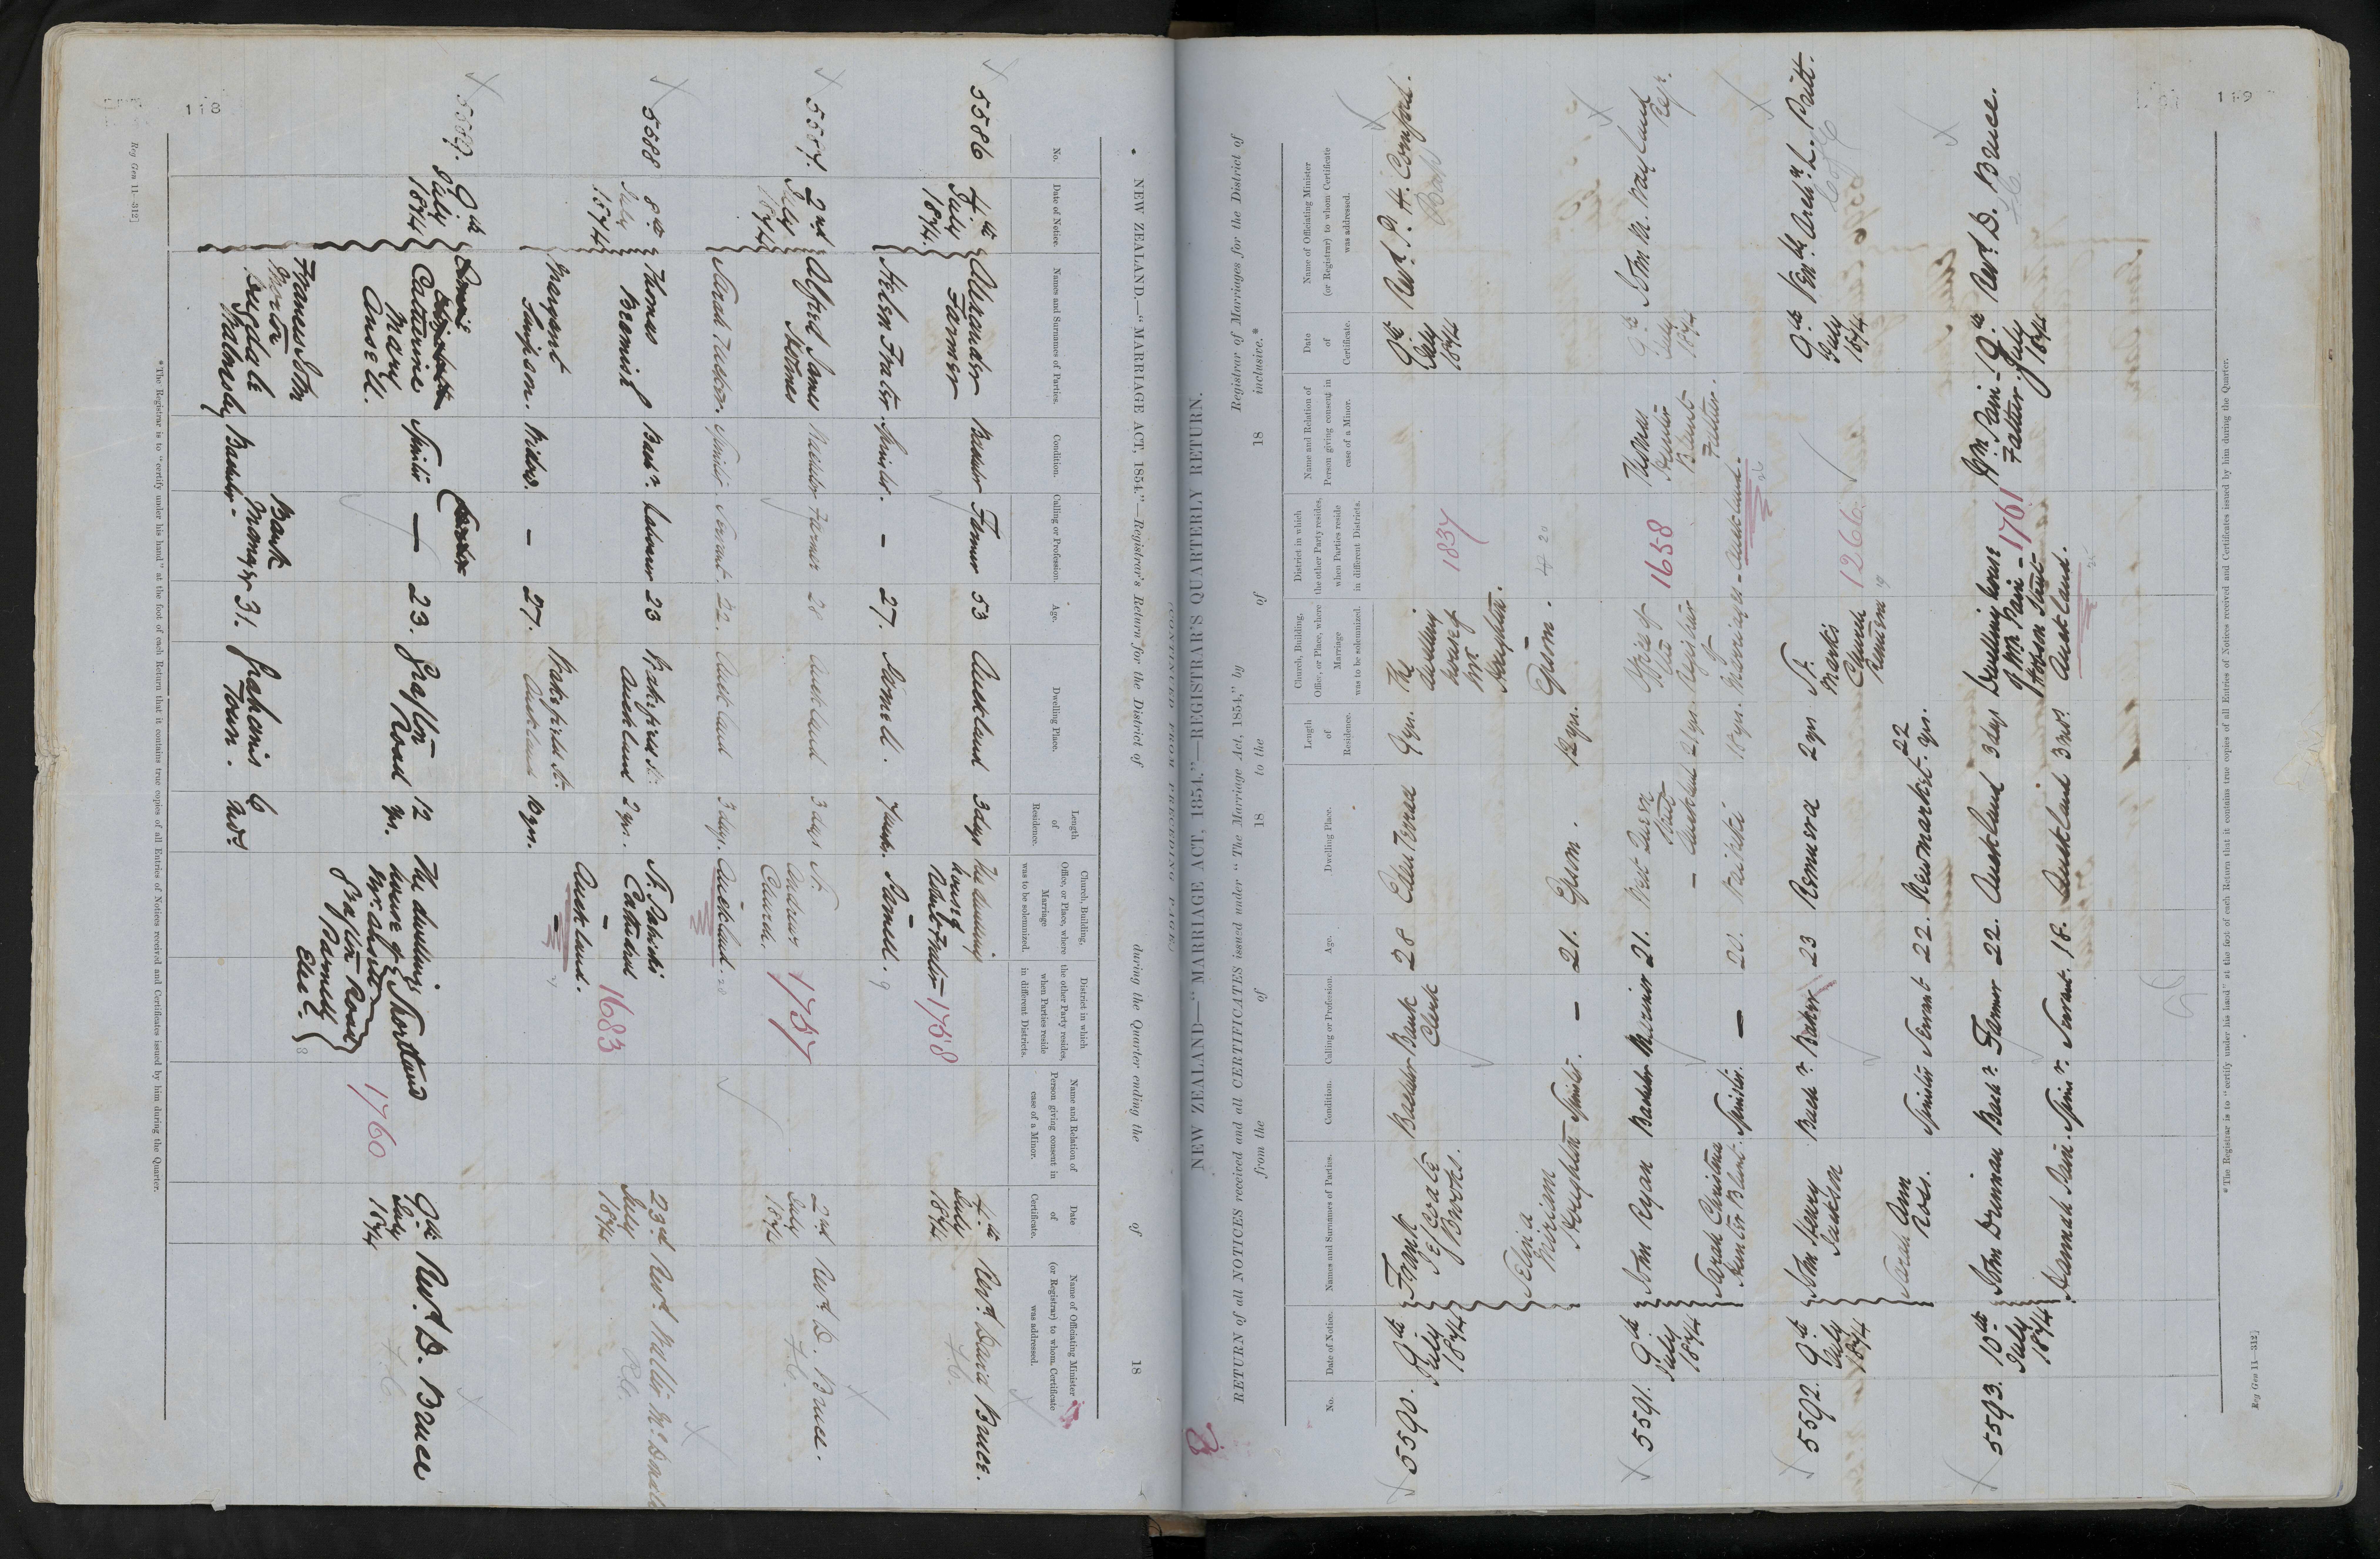 118
NEW ZEALAND.—"MARRIAGE ACT, 1854."—Registrar's Return for the District of during the Quarter ending the of 18
No. Date of Notice. Names and Surnames of Parties. Condition. Calling or Profession. Age. Dwelling Place. Length of Residence. Church, Building, Office, or Place, where Marriage was to be solemnized. District in which the other Party resides, when Parties reside in different Districts. Name and Relation of Person giving consent in case of a Minor. Date of Certificate. Name of Officiating Minister (or Registrar) to whom Certificate was addressed.
5586 4th July 1874. Alexander Farmer Bachelor Farmer 53 Auckland 3 days The dwelling house of 1758 4th July 1874 Revd. David Bruce.
Helen Frater Spinster. – 27. 9
5587. 2nd July 1874 Alfred James Holmes Bachelor Farmer 28 Auckland 3 days St. Andrews Church. 1757 2nd July 1874 Revd. D. Bruce.
Spinster Servant. 22. Auckland 3 days. Auckland.
5588 8th July 1874 Thomas Bachr. Labourer 23 Wakefield St. Auckland 2 yrs. St. Patricks Cathedral 1683 23rd July 1874 Revd. Walter McDonald
R.C.
Margaret Simpson. Widow. – 27. Wakefield St. Auckland 10 yrs. Auckland.
5589. 9th July 1874 Catherine Mary Ansell. Spinster — 23. Grafton Road 12 yrs. The dwelling house of Mr. Shortland Grafton Road Parnell 1760 9th July 1874 Revd. D. Bruce
Frances John Burdale Walmsley Bachelor. Bank Manager 31. Grahams Town. 6 mos.
*The Registrar is to "certify under his hand" at the foot of each Return that it contains true copies of all Entries of Notices received and Certificates issued by him during the Quarter.
Reg Gen 11—312]
(CONTINUED FROM PRECEDING PAGE)
119
NEW ZEALAND—"MARRIAGE ACT, 1854."—REGISTRAR'S QUARTERLY RETURN.
RETURN of all NOTICES received and all CERTIFICATES issued under "The Marriage Act, 1854," by Registrar of Marriages for the District of
from the of 18 to the of 18 inclusive.*
No. Date of Notice. Names and Surnames of Parties. Condition. Calling or Profession. Age. Dwelling Place. Length of Residence. Church, Building, Office, or Place, where Marriage was to be solemnized. District in which the other Party resides, when Parties reside in different Districts. Name and Relation of Person giving consent in case of a Minor. Date of Certificate. Name of Officiating Minister (or Registrar) to whom Certificate was addressed.
5590. 9th July 1874 Frank Brooks. Bachelor Bank Clerk 28 Eden Terrace 9 yrs. The dwelling house of Mr Houghton. 1837 9th July 1874 Revd. P. H. Cornford.
Bap
Selina Miriam Houghton Spinster. – 21. Epsom. 12 yrs. Epsom.
5591. 9th July 1874 John Ryan Bachelor Mariner 21. West Queen Street – Auckland 21 yrs Office of Registrar of Marriages – Auckland. 1658 Thomas Hunter Blunt Father. 9th July 1874 John M. Wayland
Sarah Christina Hunter Blunt. Spinster. — 20. Waitaki 18 yrs.
5592. 9th July 1874 John Henry Jackson Bachr. Baker 23 Remuera 2 yrs St. Marks Church Remuera 1266 9th July 1874
C of E
Sarah Ann Ross. Spinster Servant 22. Newmarket 22 yrs.
5593. 10th July 1874 John Drinnan Bachr. Farmer 22. Auckland 3 days Dwelling house of Mr. Pain – Hobson Street Auckland. 1761 Wm. Pain – Father. 9th July 1874 Revd. D. Bruce.
Hannah Pain. Spinr. Servant. 18. Auckland 3 mos.
*The Registrar is to "certify under his hand" at the foot of each Return that it contains true copies of all Entries of Notices received and Certificates issued by him during the Quarter.
Reg Gen 11—312]